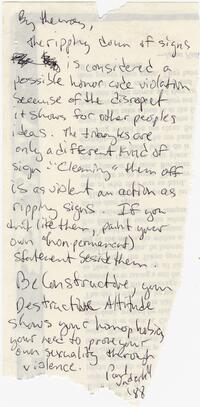 By the way,
the ripping down of signs
is considered a
possible honor code violation
because of the disrepect
it shows for other peoples
ideas. The triangles are
only a different kind of
sign. "Cleaning" them off
is as violent an action as
ripping signs. If you
don't like them, paint your
own (non-permanent)
statement beside them.
Be Constructive, your
Destructive Attitude
shows your homophobia,
your need to prove your
own sexuality through
violence.
'88